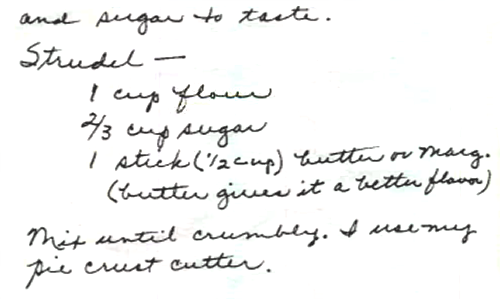 and sugar to taste.
Strudel —
1 cup flour
2/3 cup sugar
1 stick (1/2 cup) butter or marg.
(butter gives it a better flavor)
Mix until crumbly. I use my
pie crust cutter.